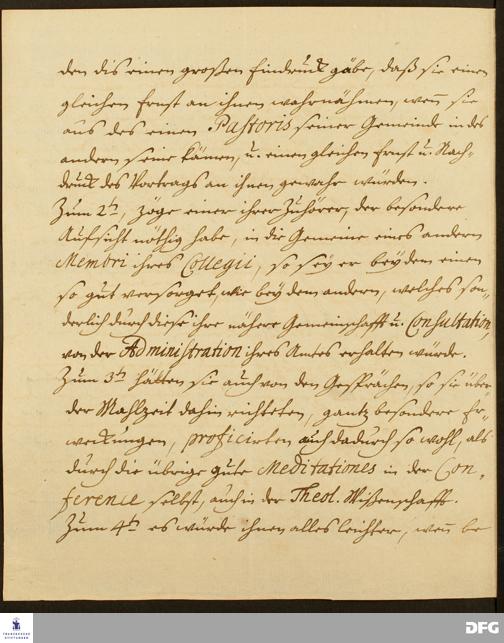 den dis einen großen Eindruck gäbe, daß sie einen
gleichen Ernst an ihnen wahrnähmen, wen̅ sie
aus des einen Pastoris seiner Gemeinde in des
andern seine kämen, u. einen gleichen Ernst u. Nach-
druck des Vortrags an ihnen gewahr würden.
Zum 2ten, zöge einer ihrer Zuhörer, der besondere
Aufsicht nöthig habe, in die Gemeine eines andern
Membri ihres Collegii, so sey er bey dem einen
so gut versorget, wie bey dem andern, welches son-
derlich durch diese ihre nähere Gemeinschafft u. Consultation,
von der Administration ihres Amtes erhalten würde.
Zum 3ten hätten sie auch von den Gesprächen, so sie über
der Mahlzeit dahin richteten, gantz besondere Er-
weckungen, proficirten auch dadurch so wohl, als
durch die übrige gute Meditationes in der Con-
ference selbst, auch in der Theol. Wißenschafft.
Zum 4ten es würde ihnen alles leichter, wen̅ be
FRANCKESCHE STIFTUNGEN
DFG